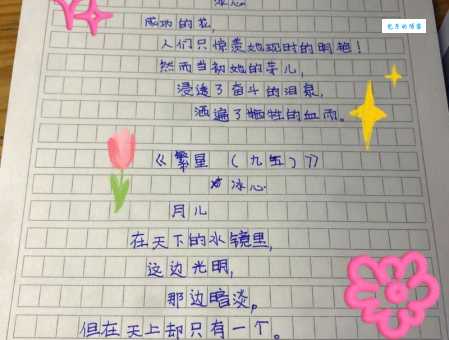 冰心
成功的花，
人们只惊羡她现时的明艳！
然而当初她的芽儿，
浸透了奋斗的泪泉，
洒遍了牺牲的血雨。
《繁星（九五）》
冰心
月儿
在天下的水镜里，
这边光明，
那边暗淡。
但在天上却只有一个。